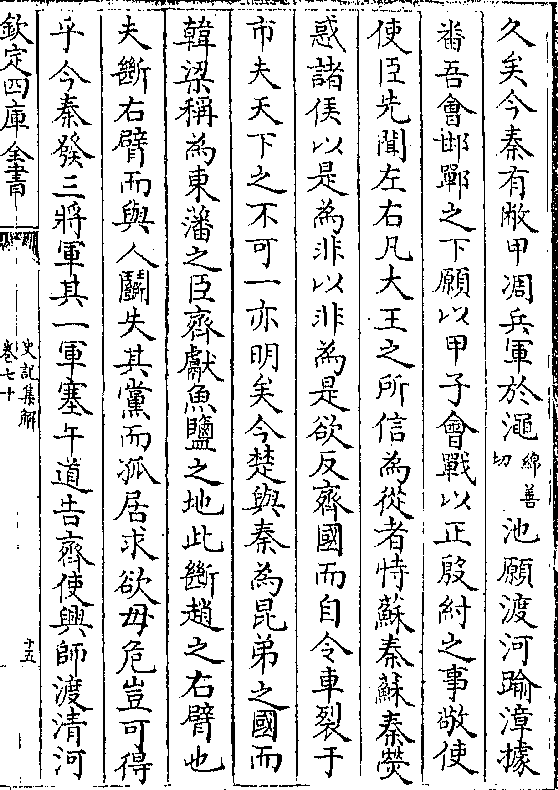 久矣今秦有敝甲凋兵軍於澠綿善切池願渡河踰漳據
番吾會邯鄲之下願以甲子會戰以正殷紂之事敬使
使臣先聞左右凡大王之所信為從者恃蘇秦蘇秦熒
惑諸侯以是為非以非為是欲反齊國而自令車裂于
市夫天下之不可一亦明矣今楚與秦為昆弟之國而
韓梁稱為東藩之臣齊獻魚鹽之地此斷趙之右臂也
夫斷右臂而與人鬭失其黨而孤居求欲毋危豈可得
乎今秦發三將軍其一軍塞午道告齊使興師渡清河
欽定四庫全書
史記集解
卷七十
十五